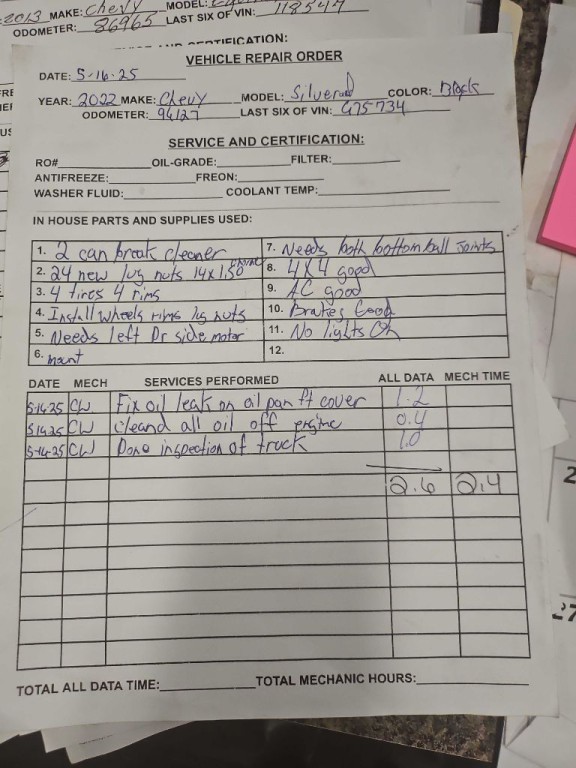 2013 MAKE: Chevy MODEL:
ODOMETER: 86965 LAST SIX OF VIN: 118547
VEHICLE REPAIR ORDER
DATE: 5-16-25
YEAR: 2022 MAKE: Chevy MODEL: Silverad COLOR: Black
ODOMETER: 96127 LAST SIX OF VIN: G75734
SERVICE AND CERTIFICATION:
RO# OIL-GRADE: FILTER:
ANTIFREEZE: FREON:
WASHER FLUID: COOLANT TEMP:
IN HOUSE PARTS AND SUPPLIES USED:
1. 2 can break cleaner
2. 24 new lug nuts 14x1.50 chrome
3. 4 tires 4 rims
4. Install wheels rims lug nuts
5. Needs left Dr side motor
6. mount
7. Needs both bottom ball joints
8. 4x4 good
9. AC good
10. Brakes Good
11. No lights On
12.
DATE MECH SERVICES PERFORMED ALL DATA MECH TIME
5-14-25 CW Fix oil leak on oil pan ft cover 1.2
51425 CW Cleand all oil off engine 0.4
5-14-25 CW Done inspection of truck 1.0
2.6 2.4
TOTAL ALL DATA TIME: TOTAL MECHANIC HOURS: